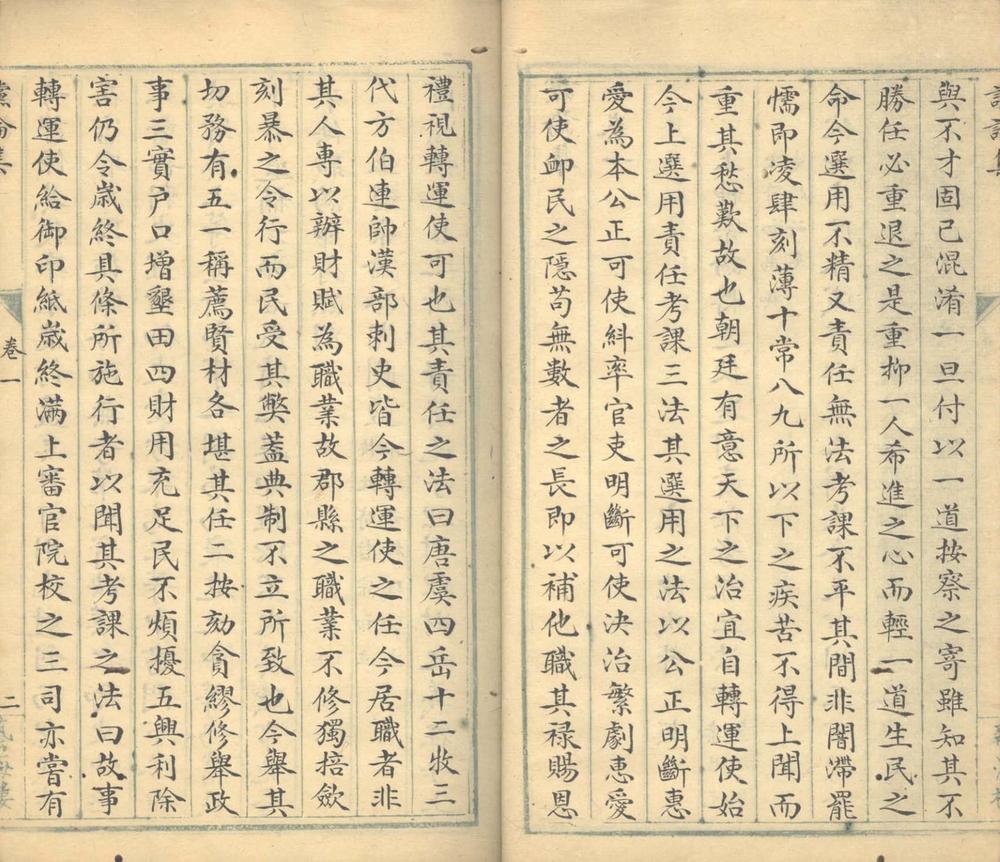 與不才固已混淆一旦付以一道按察之寄雖知其不
勝任必重退之是重抑一人希進之心而輕一道生民之
命今選用不精又責任無法考課不平其間非闇滯罷
懦即凌肆刻薄十常八九所以下之疾苦不得上聞而
重其愁歎故也朝廷有意天下之治宜自轉運使始
今上選用責任考課三法其選用之法以公正明斷惠
愛為本公正可使糾率官吏明斷可使決治繁劇惠愛
可使卹民之隱苟無數者之長即以補他職其祿賜恩
禮視轉運使可也其責任之法曰唐虞四岳十二牧三
代方伯連帥漢部刺史皆今轉運使之任今居職者非
其人專以辨財賦為職業故郡縣之職業不修獨掊斂
刻暴之令行而民受其獘蓋典制不立所致也今舉其
切務有五一稱薦賢材各堪其任二按劾貪繆修舉政
事三實戶口增墾田四財用充足民不煩擾五興利除
害仍令歲終具條所施行者以聞其考課之法曰故事
轉運使給御印紙歲終滿上審官院校之三司亦嘗有
卷一
二